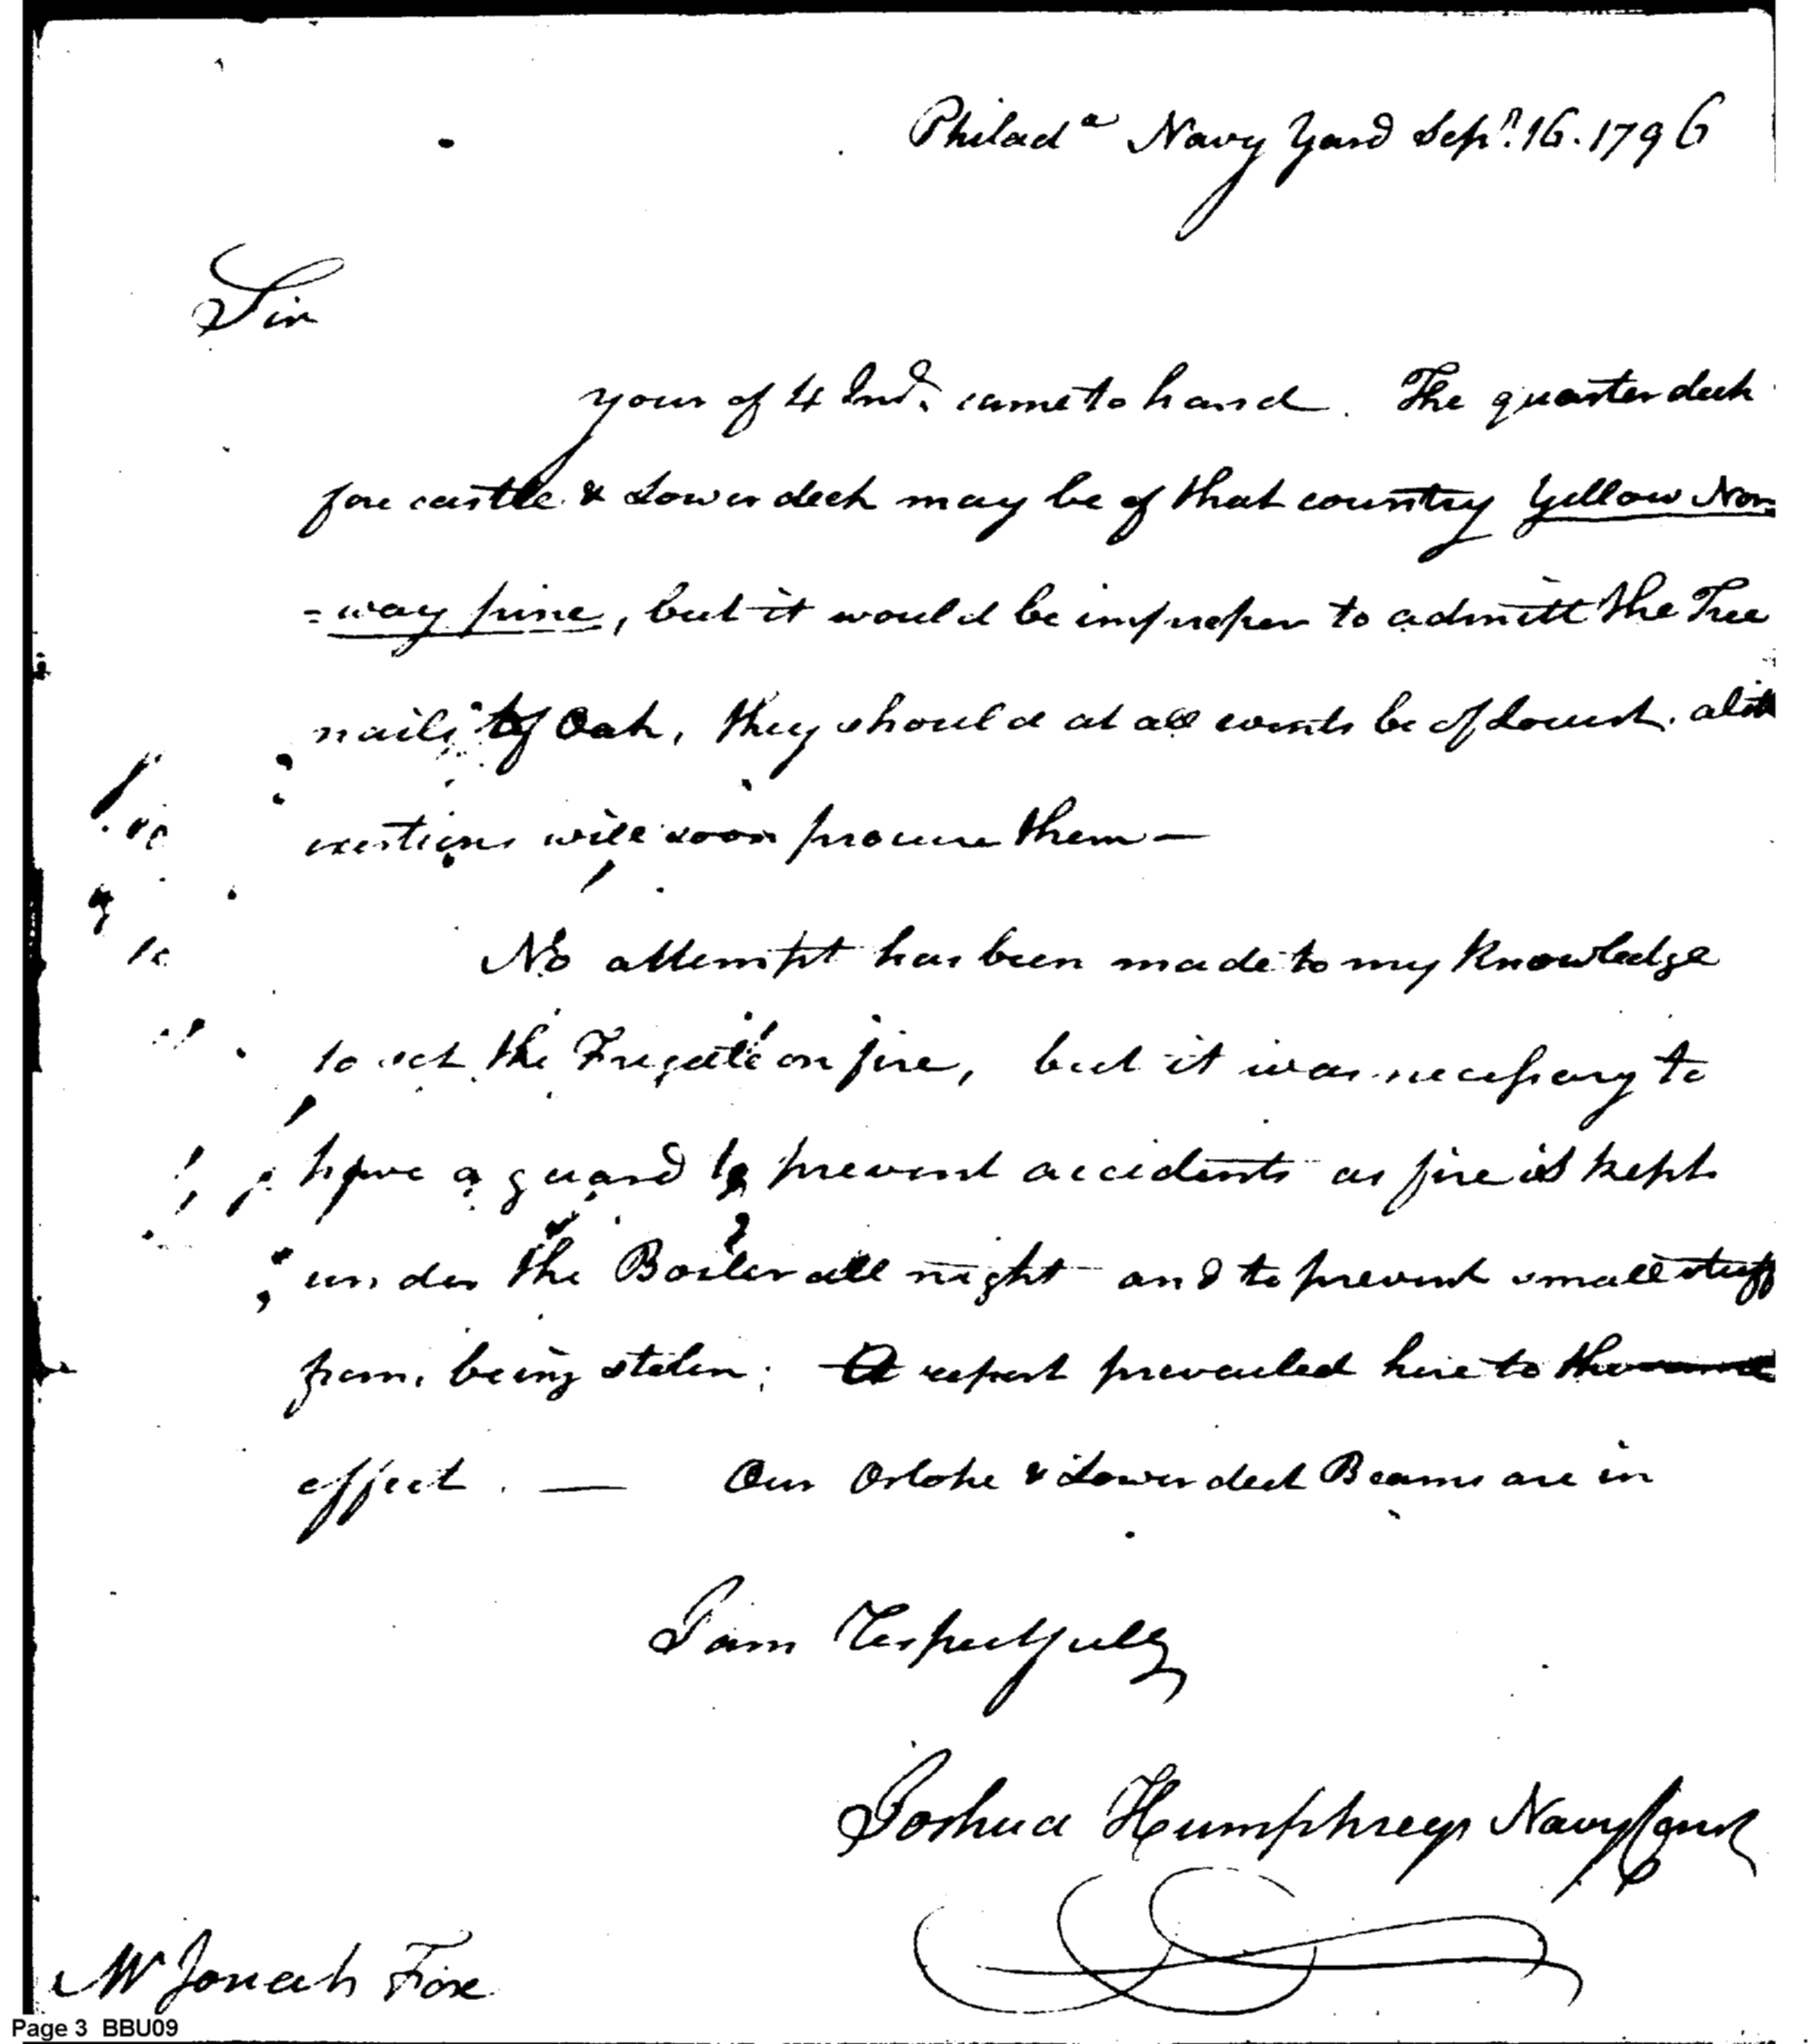 Philad<sup>a</sup> Navy Yard Sep<sup>r</sup>. 16. 1796
Sir
your of 4 Ins<sup>t</sup>. came to hand. The quarter deck
fore castle & Lower deck may be of that country Yellow Nor
=way pine, but it would be improper to admitt the Tree
nails of Oak, they should at all events be of Locust.
exertions will soon procure them —
No attempt has been made to my knowledge
to set the Frigate on fire, but it was necessary to
have a guard to prevent accidents as fire is kept
under the Boiler all night and to prevent small stuff
from being stolen; A report prevailed here to
effect. — Our Orlope & Lower deck Beams are in
I am Respectfully
Joshua Humphreys Navy
Mr Fox
Page 3 BBU09